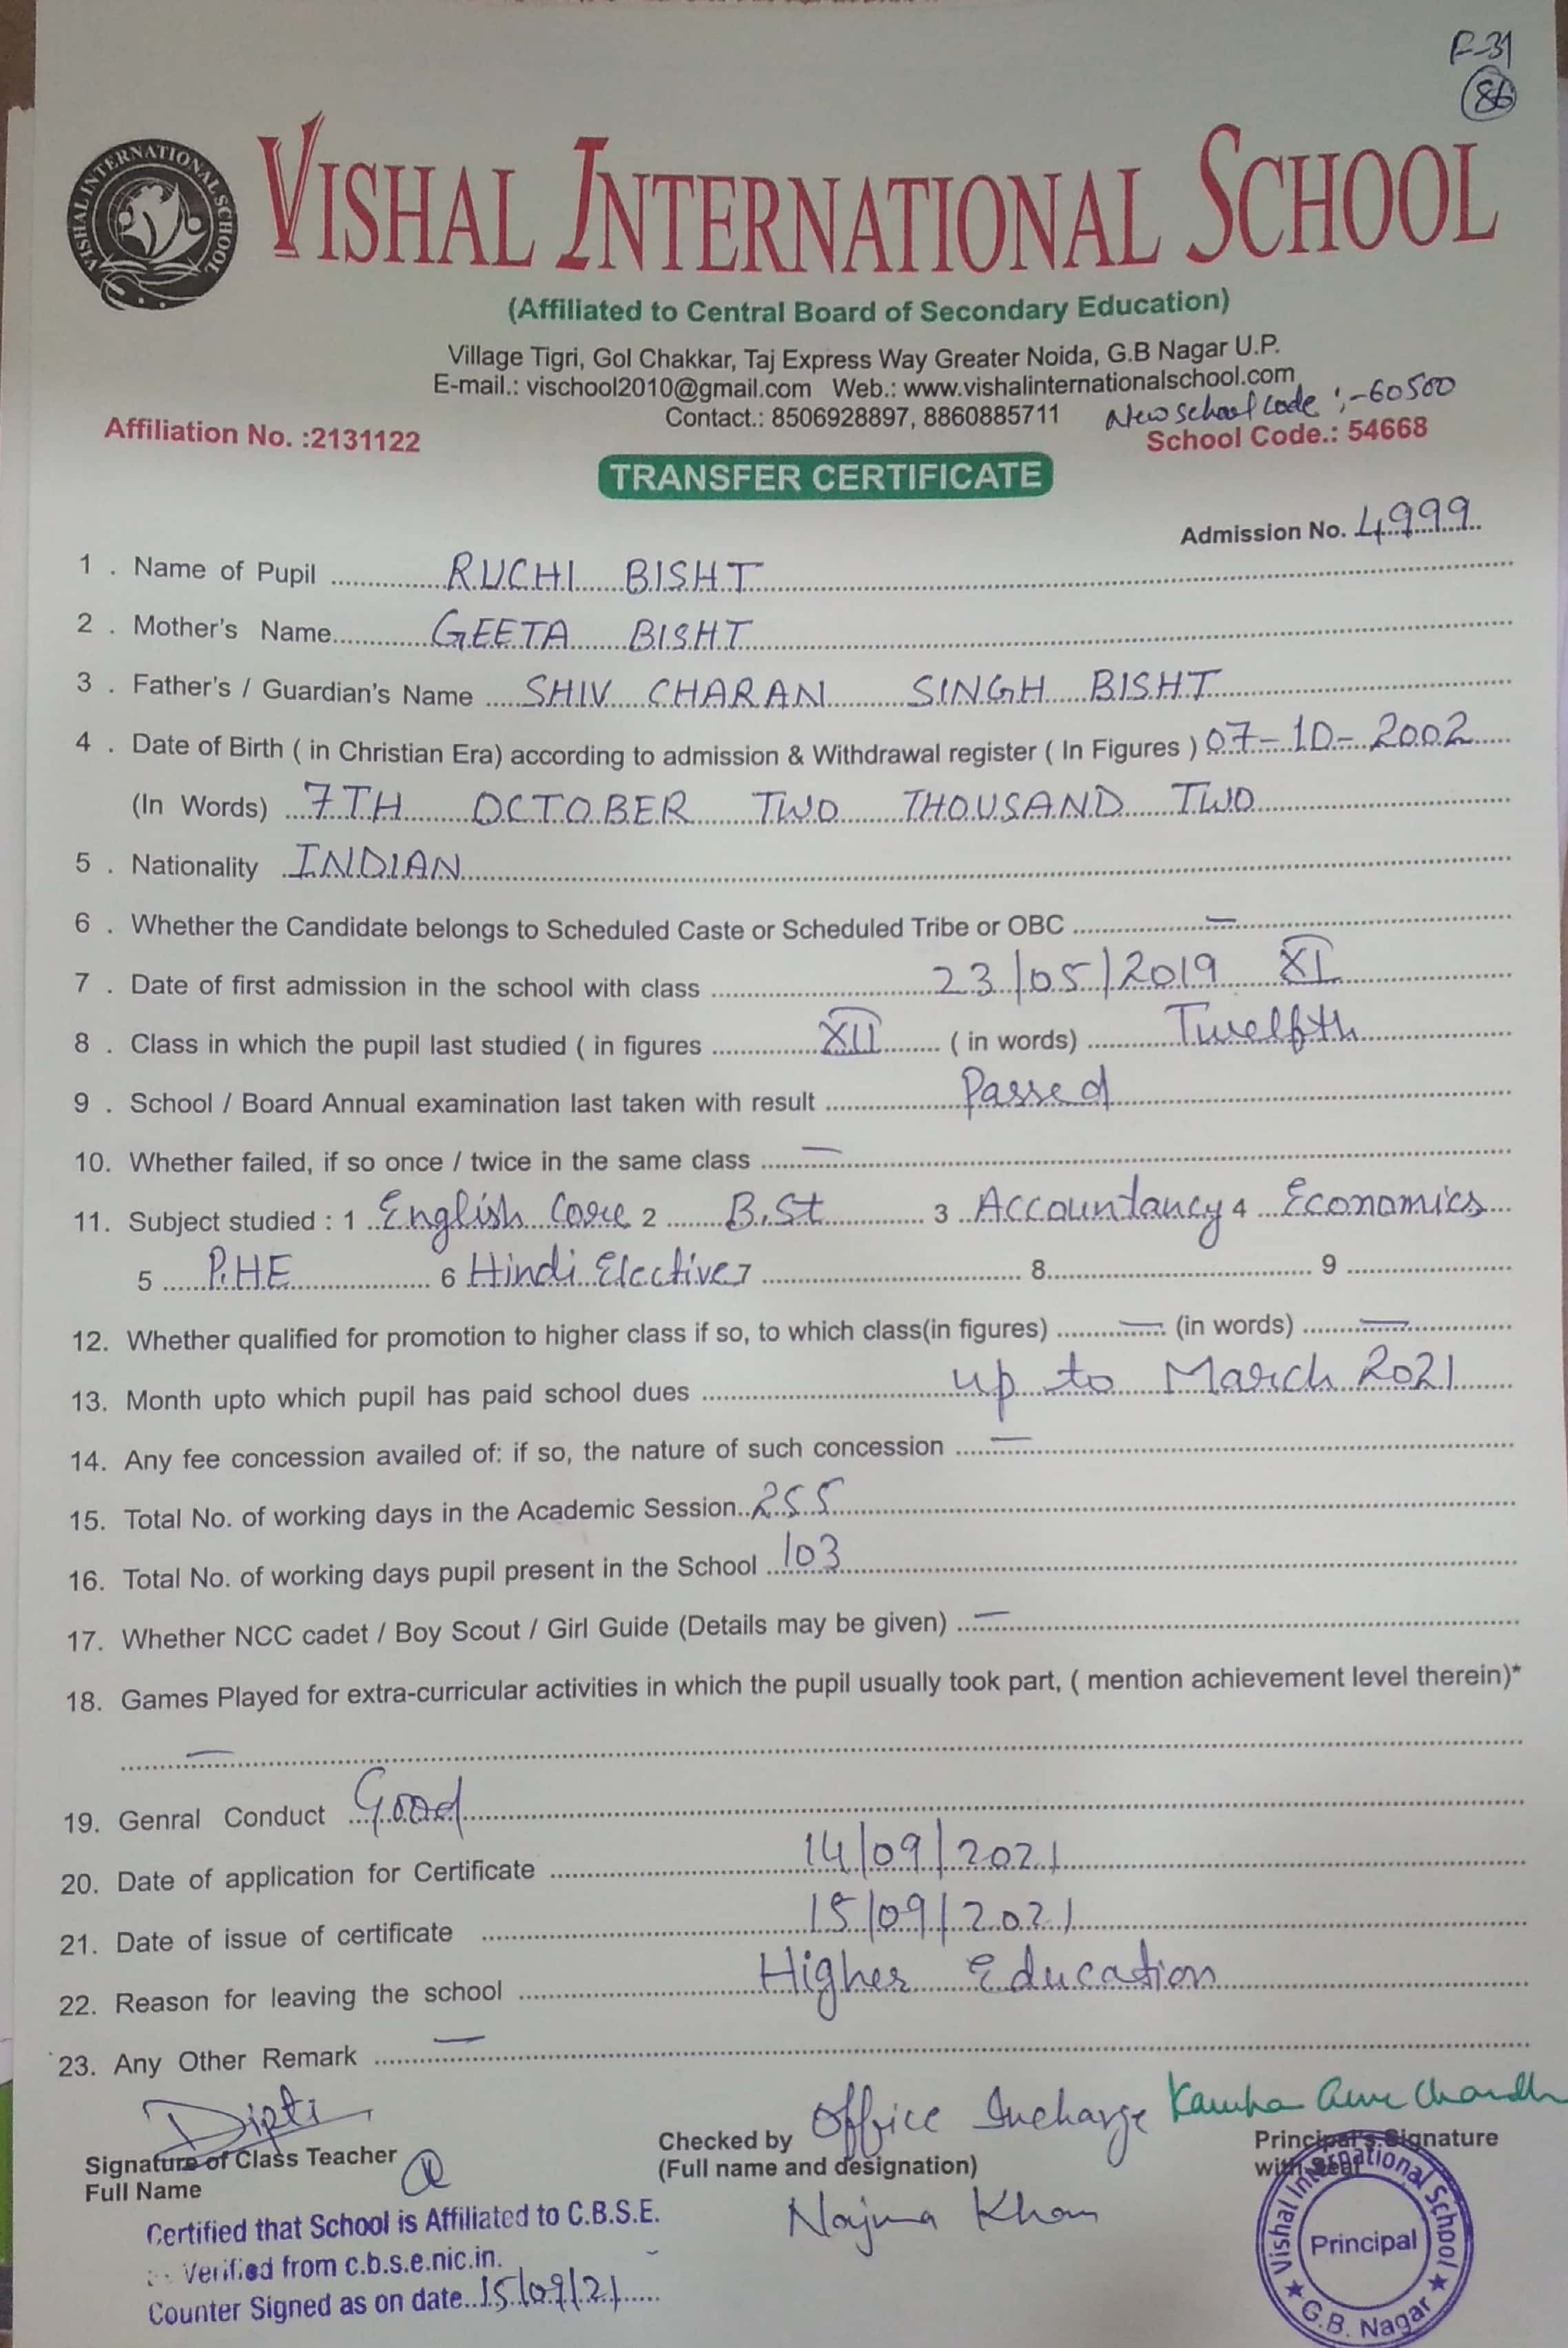 F-31
86
VISHAL INTERNATIONAL SCHOOL
VISHAL INTERNATIONAL SCHOOL
(Affiliated to Central Board of Secondary Education)
Village Tigri, Gol Chakkar, Taj Express Way Greater Noida, G.B Nagar U.P.
E-mail.: vischool2010@gmail.com Web.: www.vishalinternationalschool.com
Contact.: 8506928897, 8860885711 New school code :-60500
Affiliation No. :2131122 School Code.: 54668
TRANSFER CERTIFICATE
Admission No. 4999
1 . Name of Pupil RUCHI BISHT
2 . Mother's Name GEETA BISHT
3 . Father's / Guardian's Name SHIV CHARAN SINGH BISHT
4 . Date of Birth ( in Christian Era) according to admission & Withdrawal register ( In Figures ) 07-10-2002
(In Words) 7TH OCTOBER TWO THOUSAND TWO
5 . Nationality INDIAN
6 . Whether the Candidate belongs to Scheduled Caste or Scheduled Tribe or OBC —
7 . Date of first admission in the school with class 23/05/2019 XI
8 . Class in which the pupil last studied ( in figures XII ( in words) Twelfth
9 . School / Board Annual examination last taken with result Passed
10. Whether failed, if so once / twice in the same class —
11. Subject studied : 1 English Core 2 B.St 3 Accountancy 4 Economics
5 P.HE 6 Hindi Elective 7 8 9
12. Whether qualified for promotion to higher class if so, to which class(in figures) — (in words) —
13. Month upto which pupil has paid school dues up to March 2021
14. Any fee concession availed of: if so, the nature of such concession —
15. Total No. of working days in the Academic Session 255
16. Total No. of working days pupil present in the School 103
17. Whether NCC cadet / Boy Scout / Girl Guide (Details may be given) —
18. Games Played for extra-curricular activities in which the pupil usually took part, ( mention achievement level therein)*
—
19. Genral Conduct Good
20. Date of application for Certificate 14/09/2021
21. Date of issue of certificate 15/09/2021
22. Reason for leaving the school Higher Education
23. Any Other Remark —
Dipti
Signature of Class Teacher
Full Name
Checked by Office Incharge
(Full name and designation)
Najma Khan
Principal's Signature
with Seal
Certified that School is Affiliated to C.B.S.E.
Verified from c.b.s.e.nic.in.
Counter Signed as on date 15/09/21
Vishal International School
Principal
★ G.B. Nagar ★